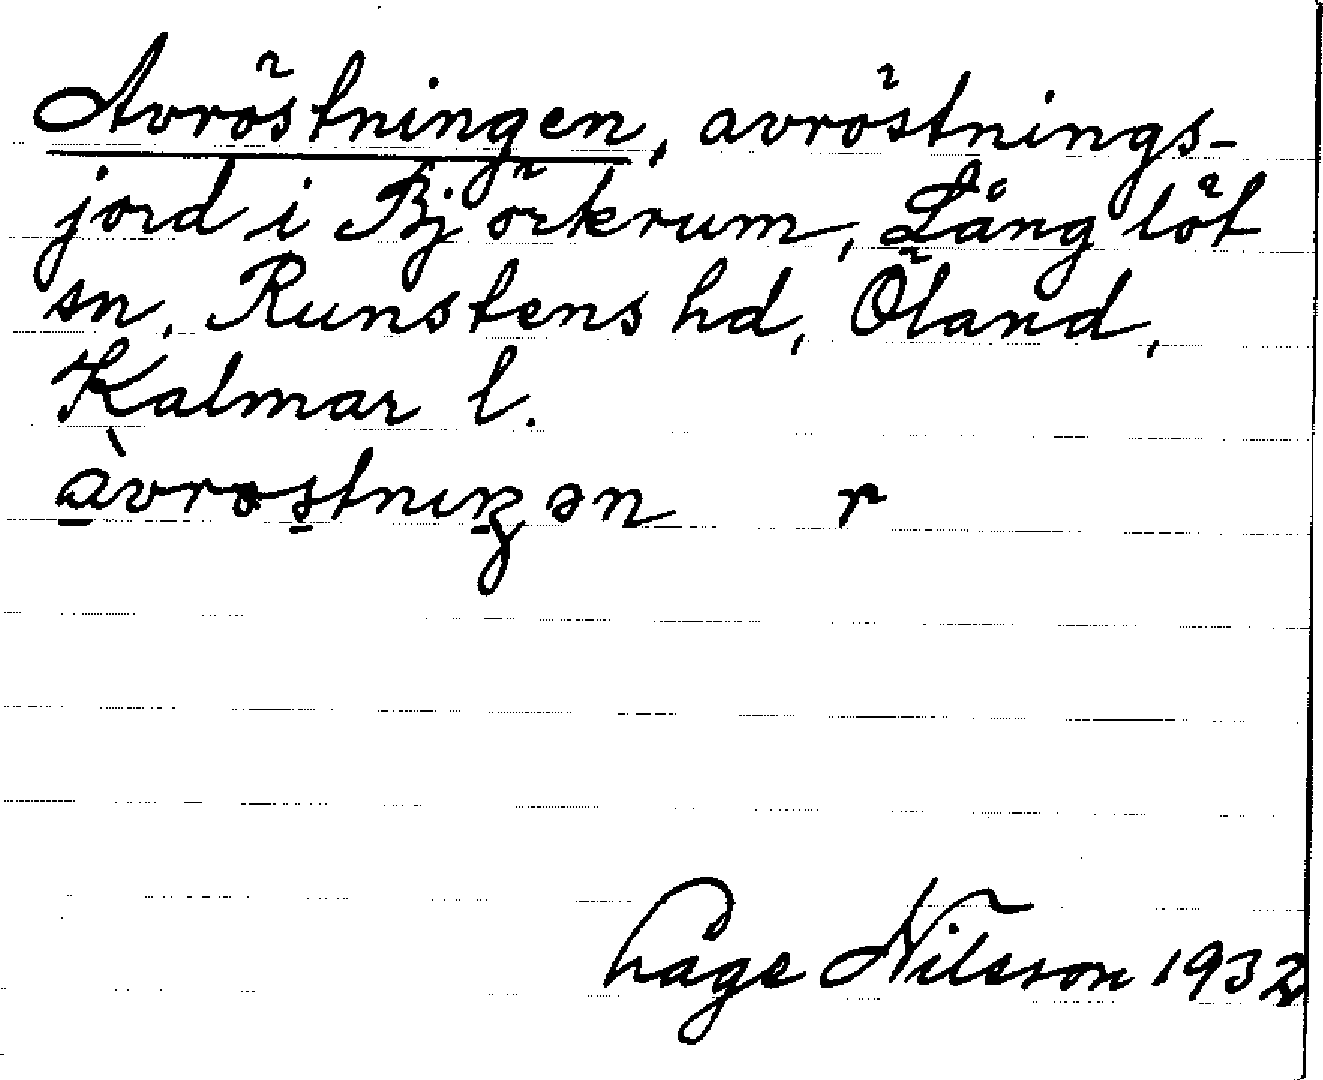 Avröstningen, avröstnings-
jord i Björkerum, Långlöt
sn, Runstens hd, Öland,
Kalmar l.
r
Låge Nilsson 1932